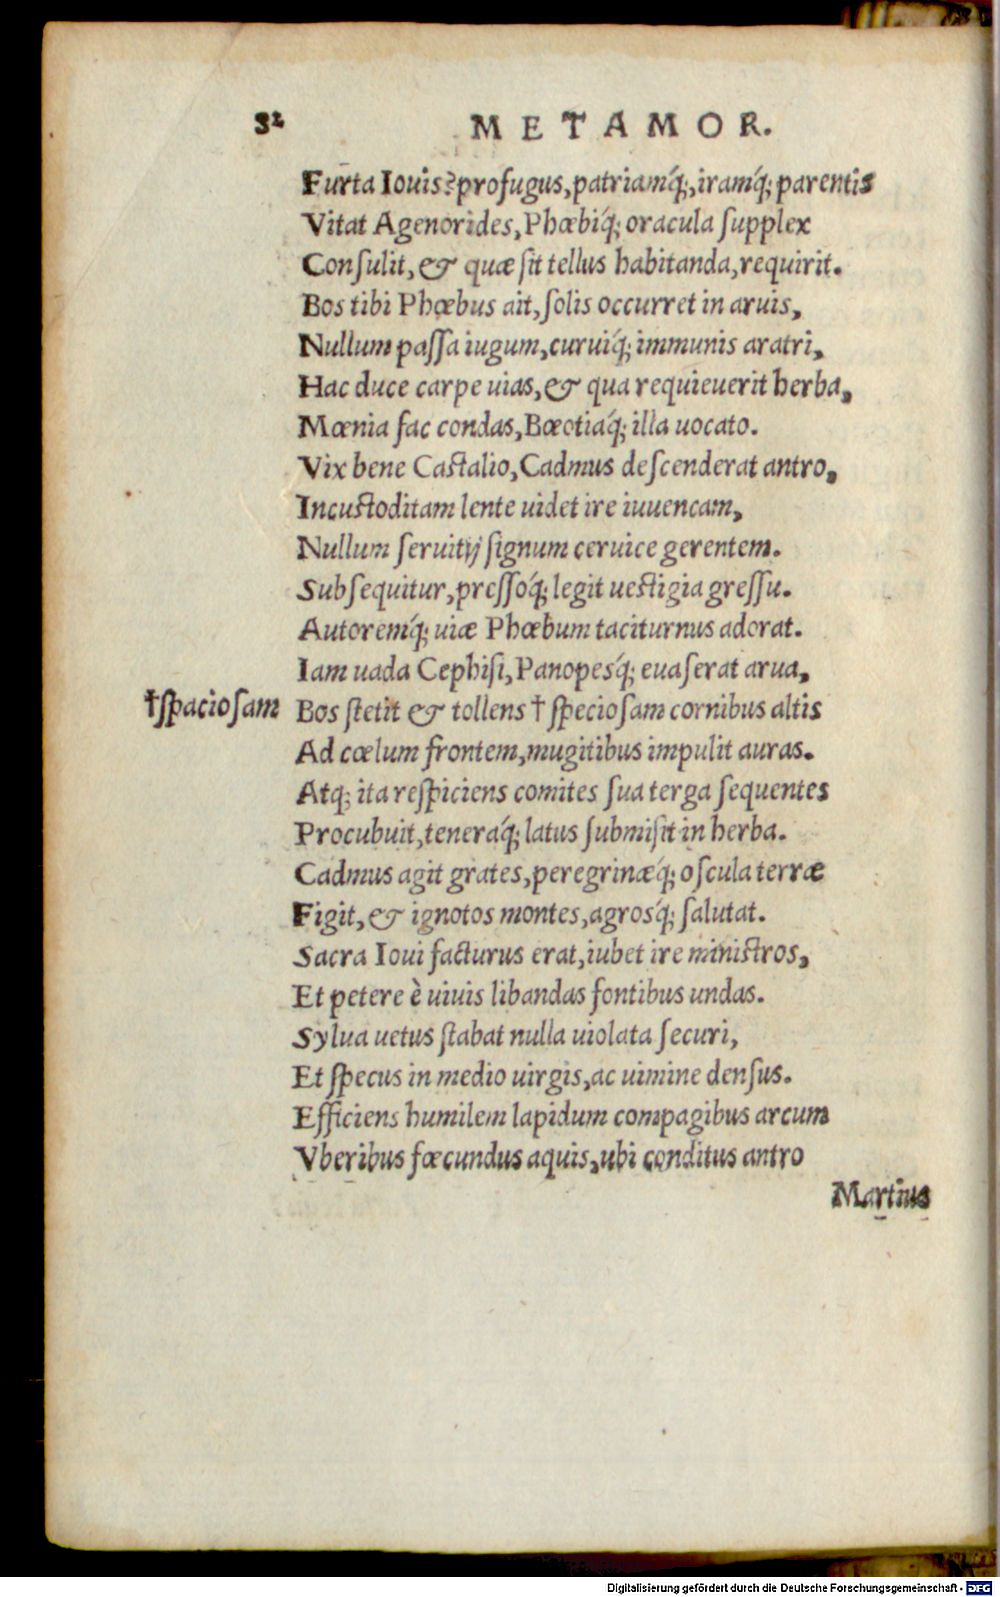 82 METAMOR.
Furta Iouis? profugus, patriamq́;, iramq́; parentis
Vitat Agenorides, Phœbiq́; oracula ſupplex
Conſulit, & quæ ſit tellus habitanda, requirit.
Bos tibi Phœbus ait, ſolis occurret in aruis,
Nullum paſſa iugum, curuiq́; immunis aratri,
Hac duce carpe uias, & qua requieuerit herba,
Mœnia fac condas, Bœotiaq́; illa uocato.
Vix bene Caſtalio, Cadmus deſcenderat antro,
Incuſtoditam lente uidet ire iuuencam,
Nullum ſeruitij ſignum ceruice gerentem.
Subſequitur, preſſoq́; legit ueſtigia greſſu.
Autoremq́; uiæ Phœbum taciturnus adorat.
Iam uada Cephiſi, Panopesq́; euaſerat arua,
†ſpacioſam Bos ſtetit & tollens † ſpecioſam cornibus altis
Ad cœlum frontem, mugitibus impulit auras.
Atq; ita reſpiciens comites ſua terga ſequentes
Procubuit, teneraq́; latus ſubmiſit in herba.
Cadmus agit grates, peregrinæq́; oſcula terræ
Figit, & ignotos montes, agrosq́; ſalutat.
Sacra Ioui facturus erat, iubet ire miniſtros,
Et petere è uiuis libandas fontibus undas.
Sylua uetus ſtabat nulla uiolata ſecuri,
Et ſpecus in medio uirgis, ac uimine denſus.
Efficiens humilem lapidum compagibus arcum
Vberibus fœcundus aquis, ubi conditus antro
Martius
Digitalisierung gefördert durch die Deutsche Forschungsgemeinschaft - DFG